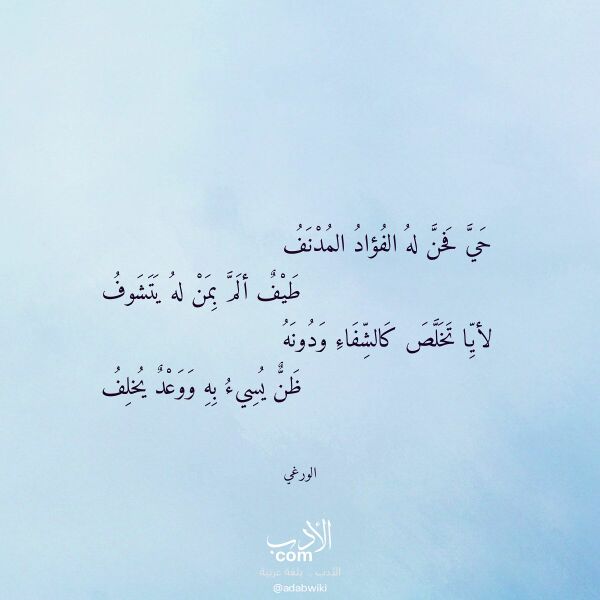 حَيَّ فَحَنَّ لهُ الفُؤادُ المُدْنَفُ
طَيْفٌ ألَمَّ بِمَنْ لهُ يَتَشَوفُ
لأيِّا تَخَلَّصَ كَالشِّفَاءِ وَدُونَهُ
ظَنٌّ يُسِيءُ بِهِ وَوَعْدٌ يُخلِفُ
الورغي
الأدب
com
الأدب .. بلغة عربية
@adabwiki